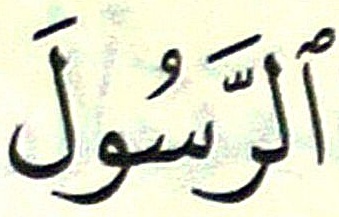 ٱلرَّسُولَ